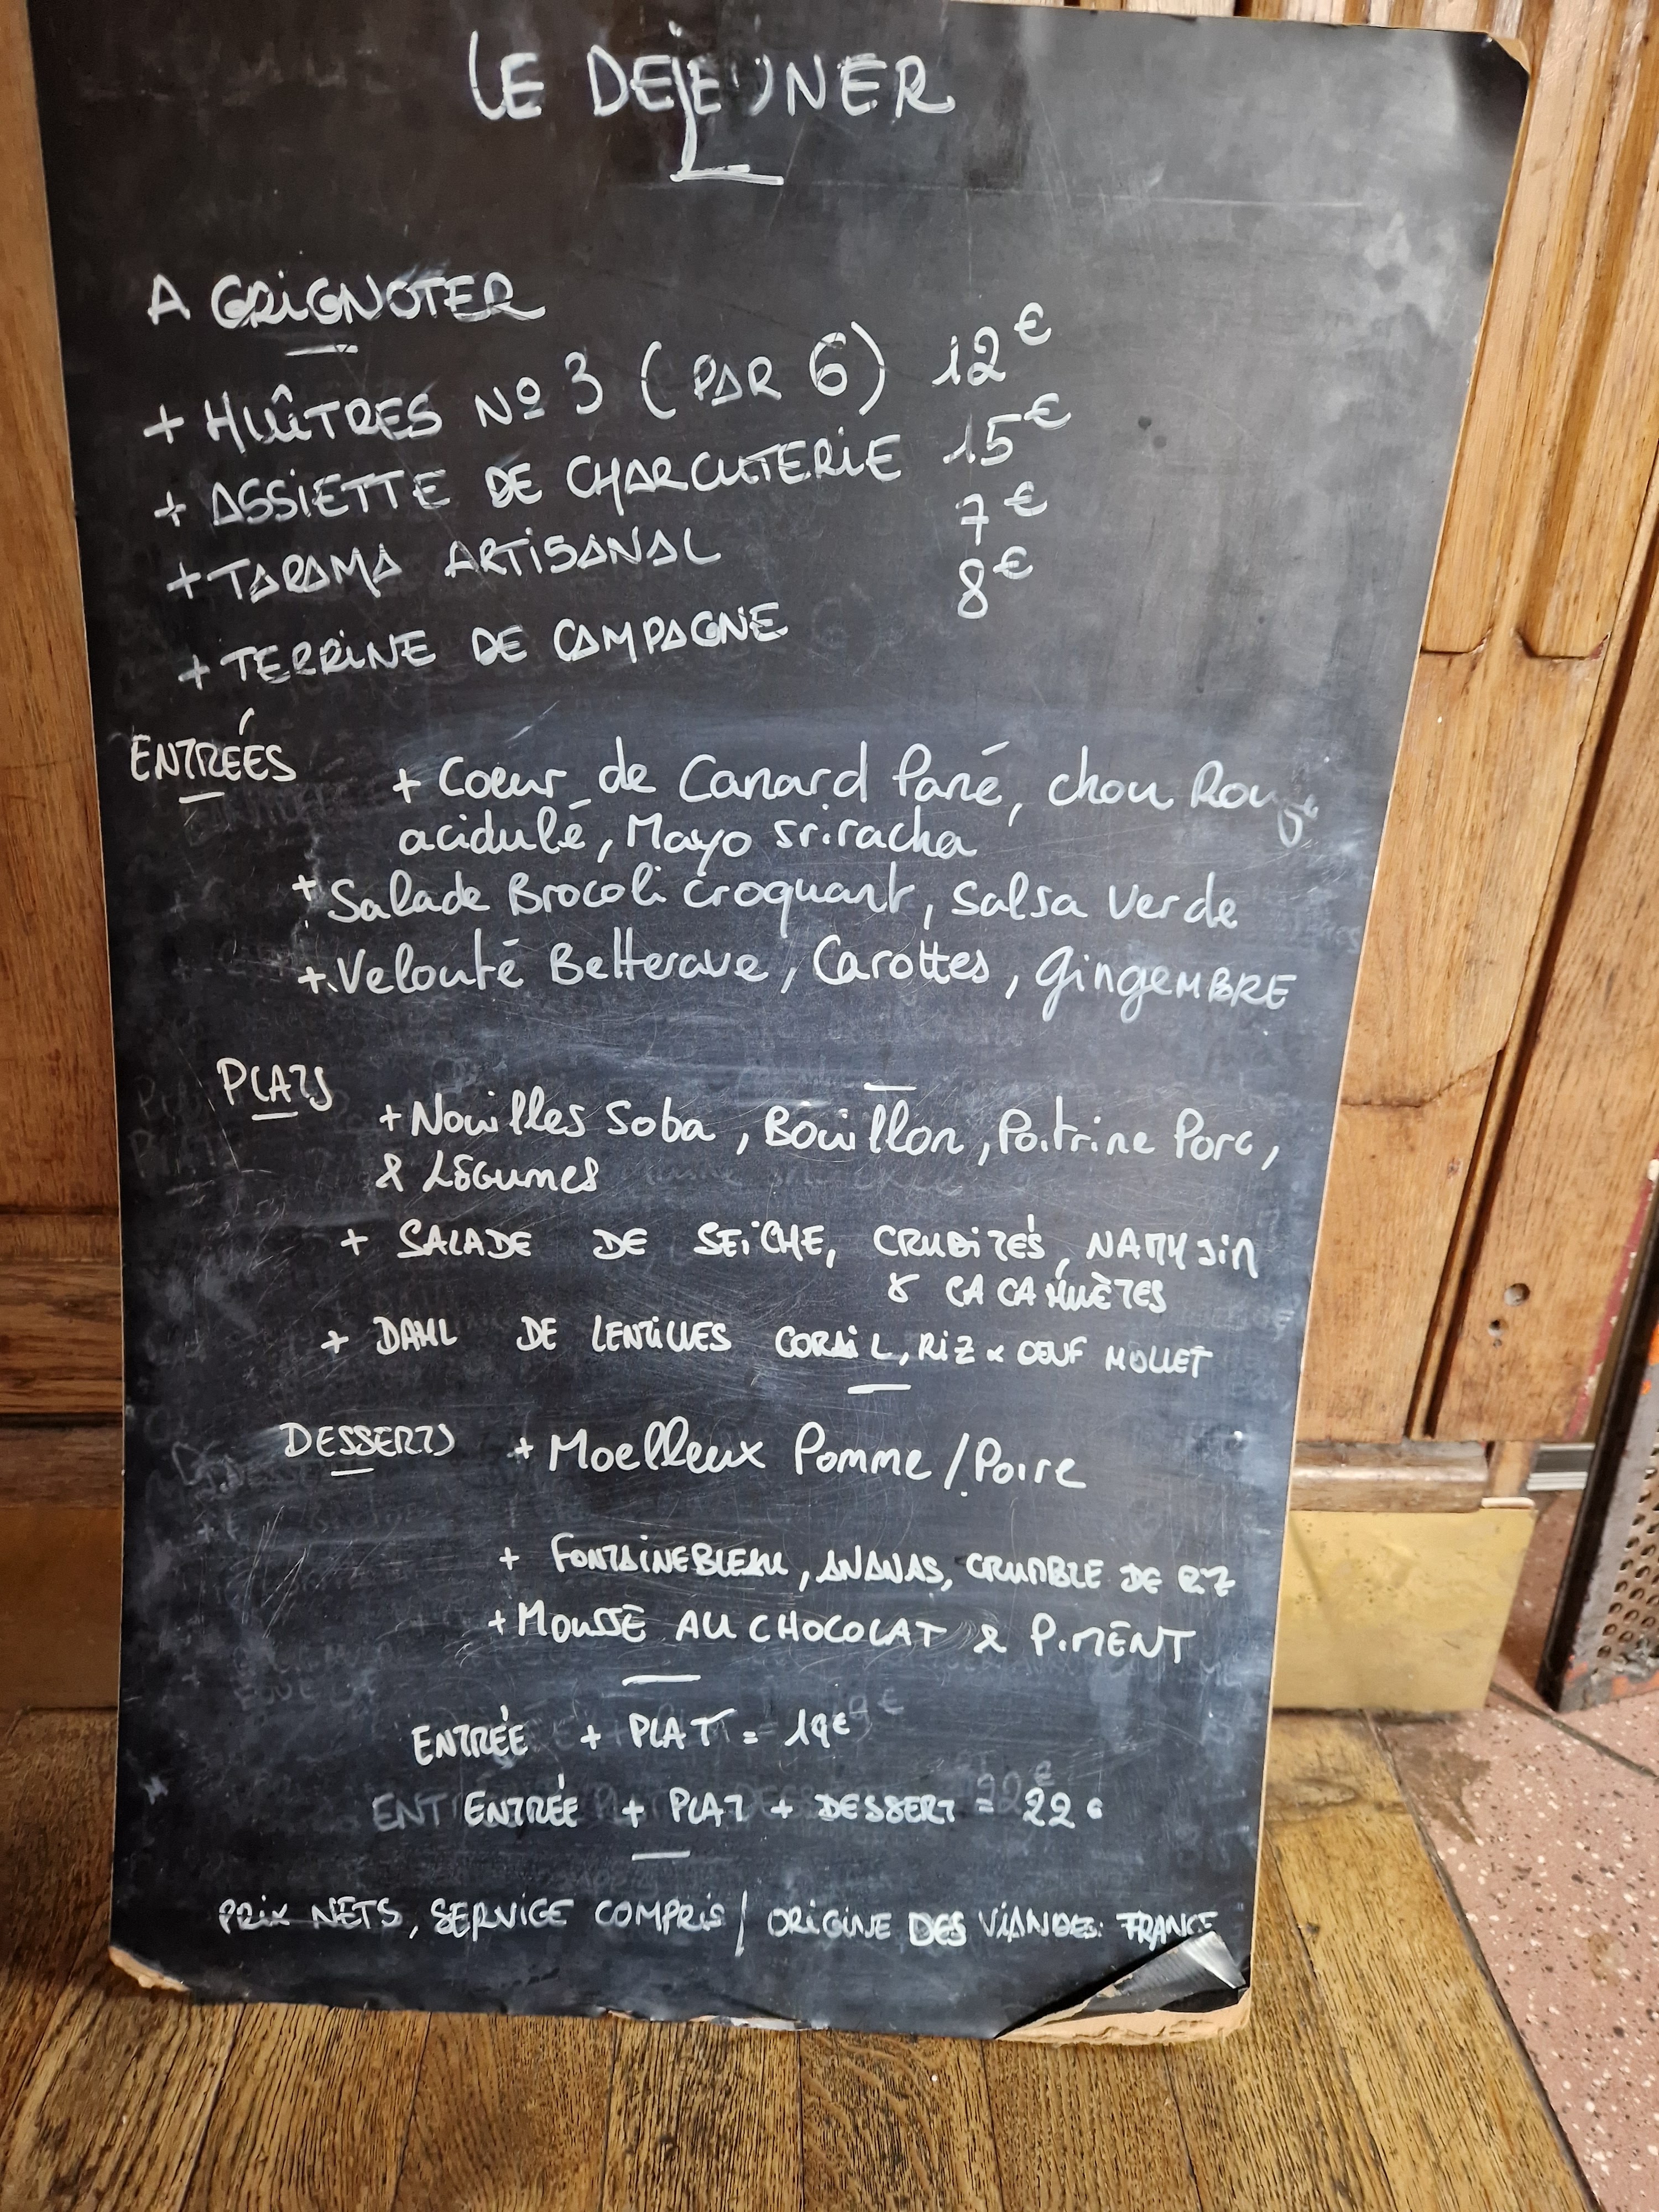 LE DEJEUNER
A GRIGNOTER
+ HUÎTRES Nº 3 (PAR 6) 12€
+ ASSIETTE DE CHARCUTERIE 15€
+ TARAMA ARTISANAL 7€
+ TERRINE DE CAMPAGNE 8€
ENTRÉES
+ Coeur de Canard Pané, chou Rouge
acidulé, Mayo sriracha
+ Salade Brocoli croquant, salsa verde
+ Velouté Betterave, Carottes, gingEMBRE
PLATS
+ Nouilles Soba, Bouillon, Poitrine Porc,
& LÉGUMES
+ SALADE DE SEICHE, CRUDITÉS, NAMYJIM
& CACAHUÈTES
+ DAHL DE LENTILLES CORAIL, RIZ & OEUF MOLLET
DESSERTS + Moelleux Pomme / Poire
+ FONTAINEBLEAU, ANANAS, CRUMBLE DE RIZ
+ MOUSSE AU CHOCOLAT & PIMENT
ENTRÉE + PLAT = 19€
ENTRÉE + PLAT + DESSERT = 22€
PRIX NETS, SERVICE COMPRIS / ORIGINE DES VIANDES: FRANCE